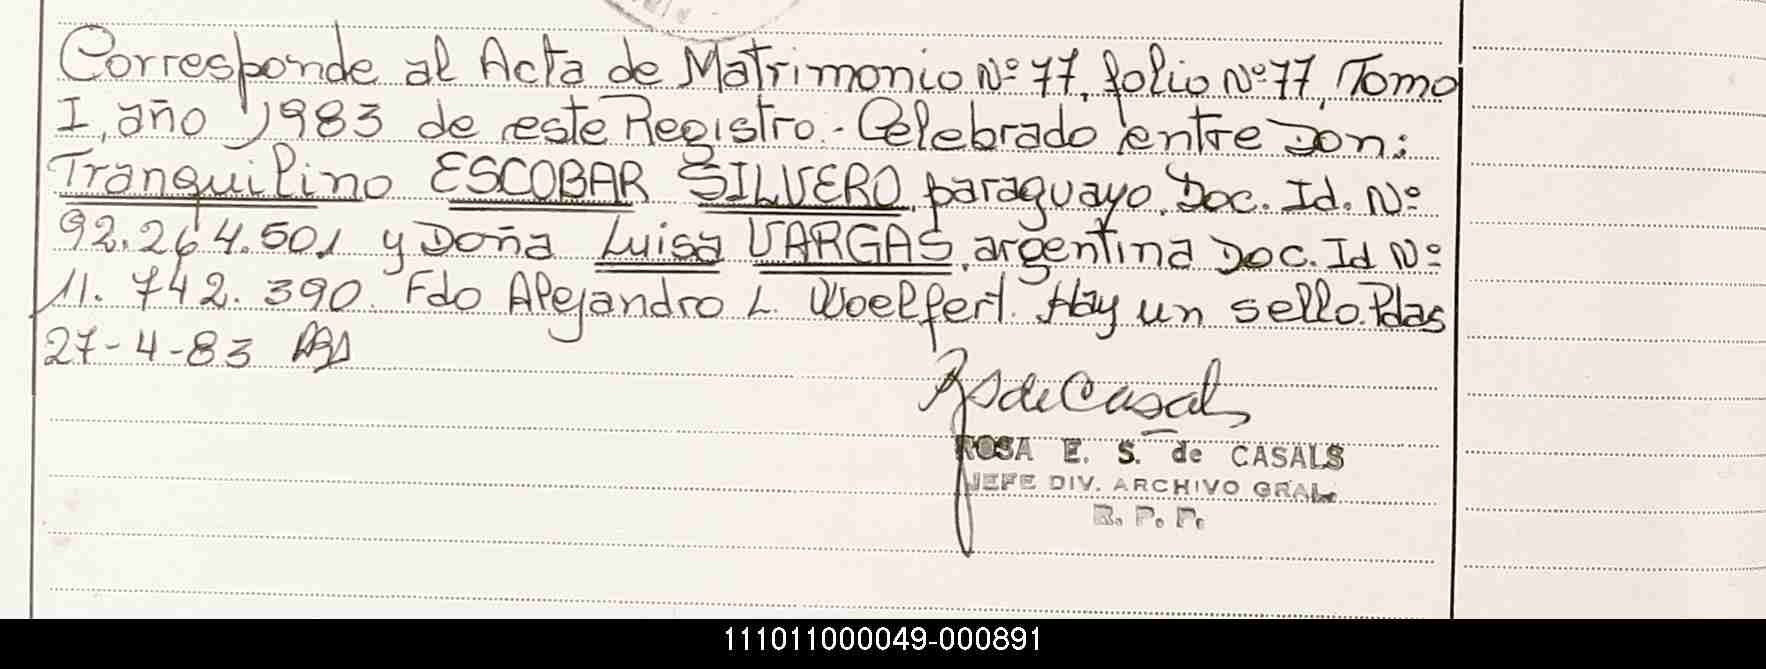 Corresponde al Acta de Matrimonio Nº 77, folio Nº 77, Tomo
I, año 1983 de este Registro.- Celebrado entre Don:
Tranquilino ESCOBAR SILVERO, paraguayo, Doc. Id. Nº
92.264.501 y Doña Luisa VARGAS, argentina Doc. Id Nº
11.742.390. Fdo Alejandro L. Woelfert. Hay un sello. Pdas
27-4-83
ROSA E. S. de CASALS
JEFE DIV. ARCHIVO GRAL.
R. P. P.
111011000049-000891